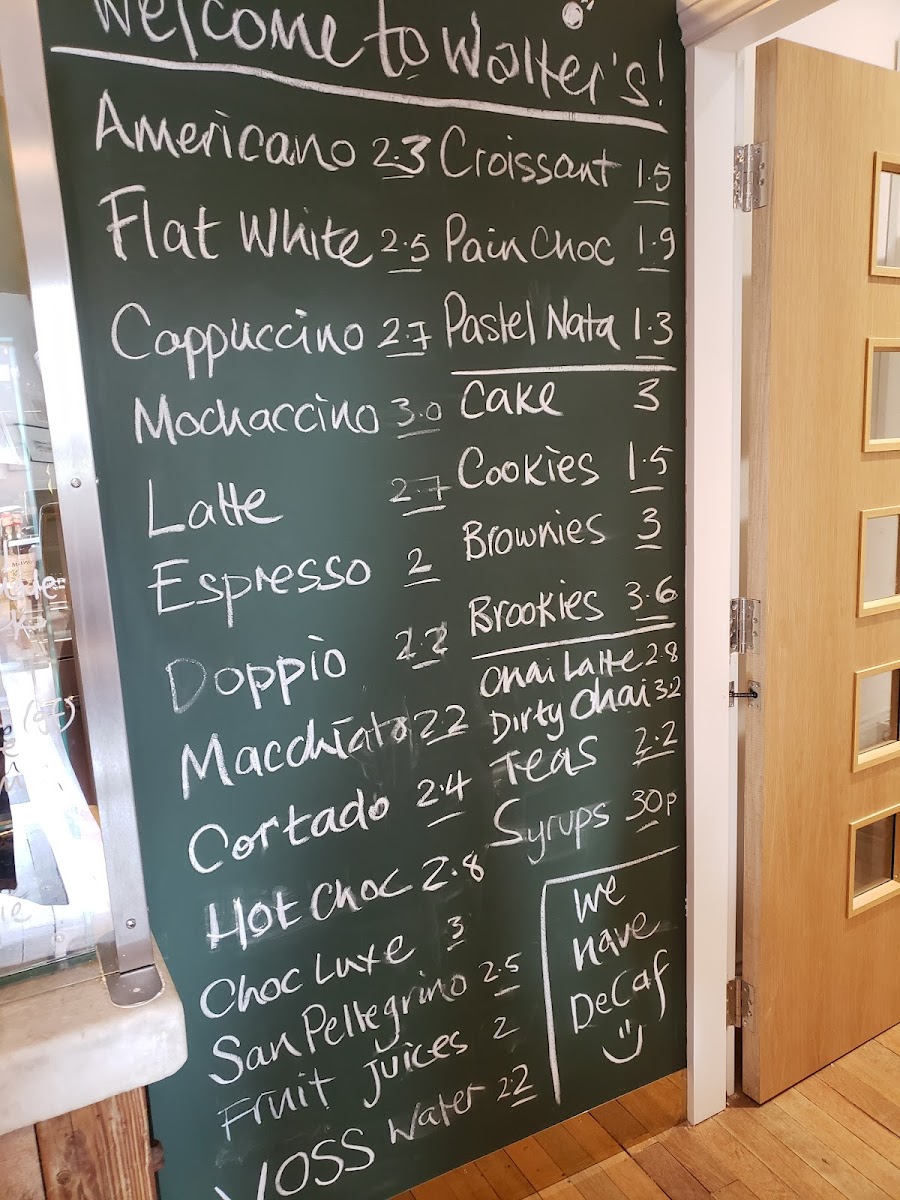 Welcome to Walter's!
Americano 2.3
Flat White 2.5
Cappuccino 2.7
Mochaccino 3.0
Latte 2.7
Espresso 2
Doppio 2.2
Macchiato 2.2
Cortado 2.4
Hot Choc 2.8
Choc Luxe 3
San Pellegrino 2.5
Fruit juices 2
VOSS Water 2.2
Croissant 1.5
Pain Choc 1.9
Pastel Nata 1.3
Cake 3
Cookies 1.5
Brownies 3
Brookies 3.6
Chai Latte 2.8
Dirty Chai 3.2
Teas 2.2
Syrups 30p
We
have
Decaf